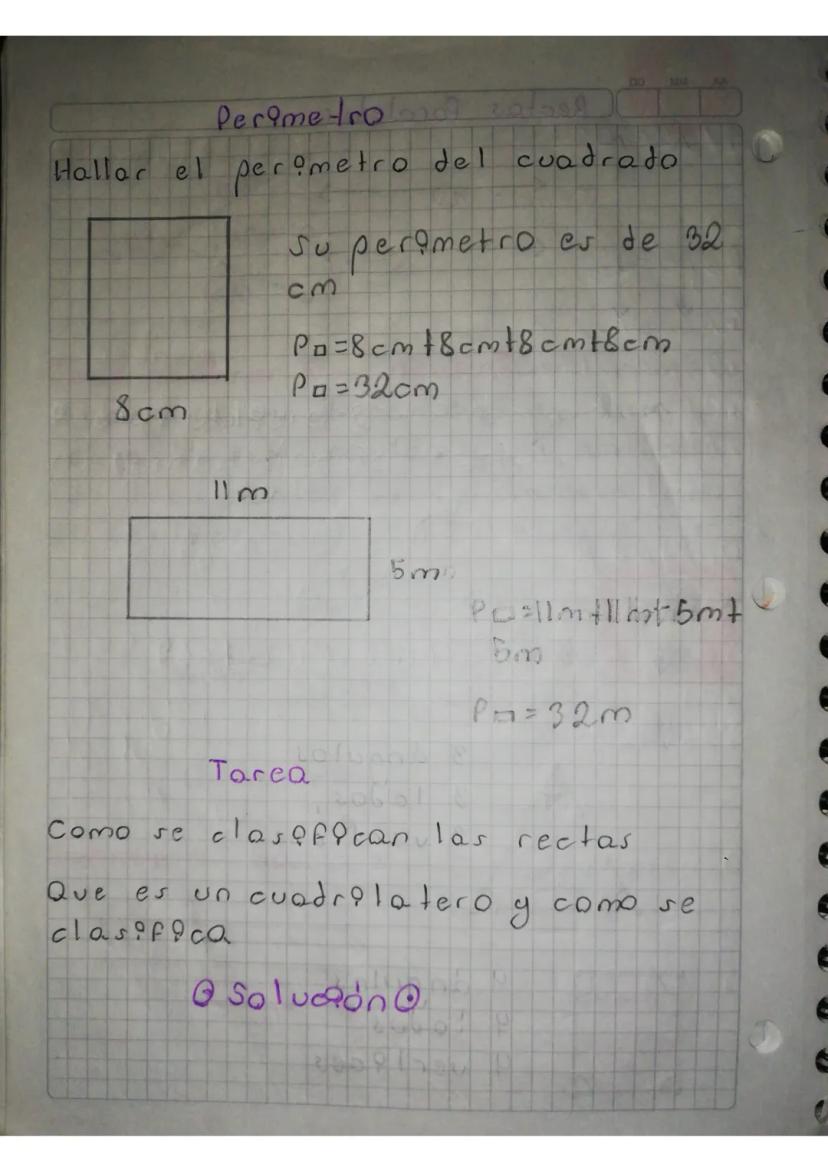 Perímetro
Hallar el perímetro del cuadrado
Su perímetro es de 32
cm
P□=8cm+8cm+8cm+8cm
P□=32cm
8cm
11m
5m
P▭=11m+11m+5m+
5m
P▭=32m
Tarea
Como se clasifican las rectas
Que es un cuadrilatero y como se
clasifica
Solución